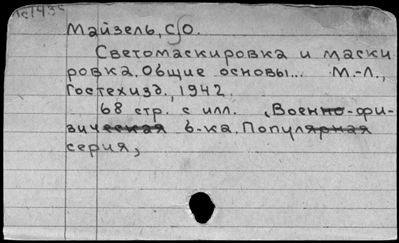 Майзель, С. О.
Светомаскировка и маски
ровка. Общие основы... М.-Л.,
Гостехизд., 1942.
68 стр. с илл. (Военно-фи-
зическая б-ка. Популярная
серия)